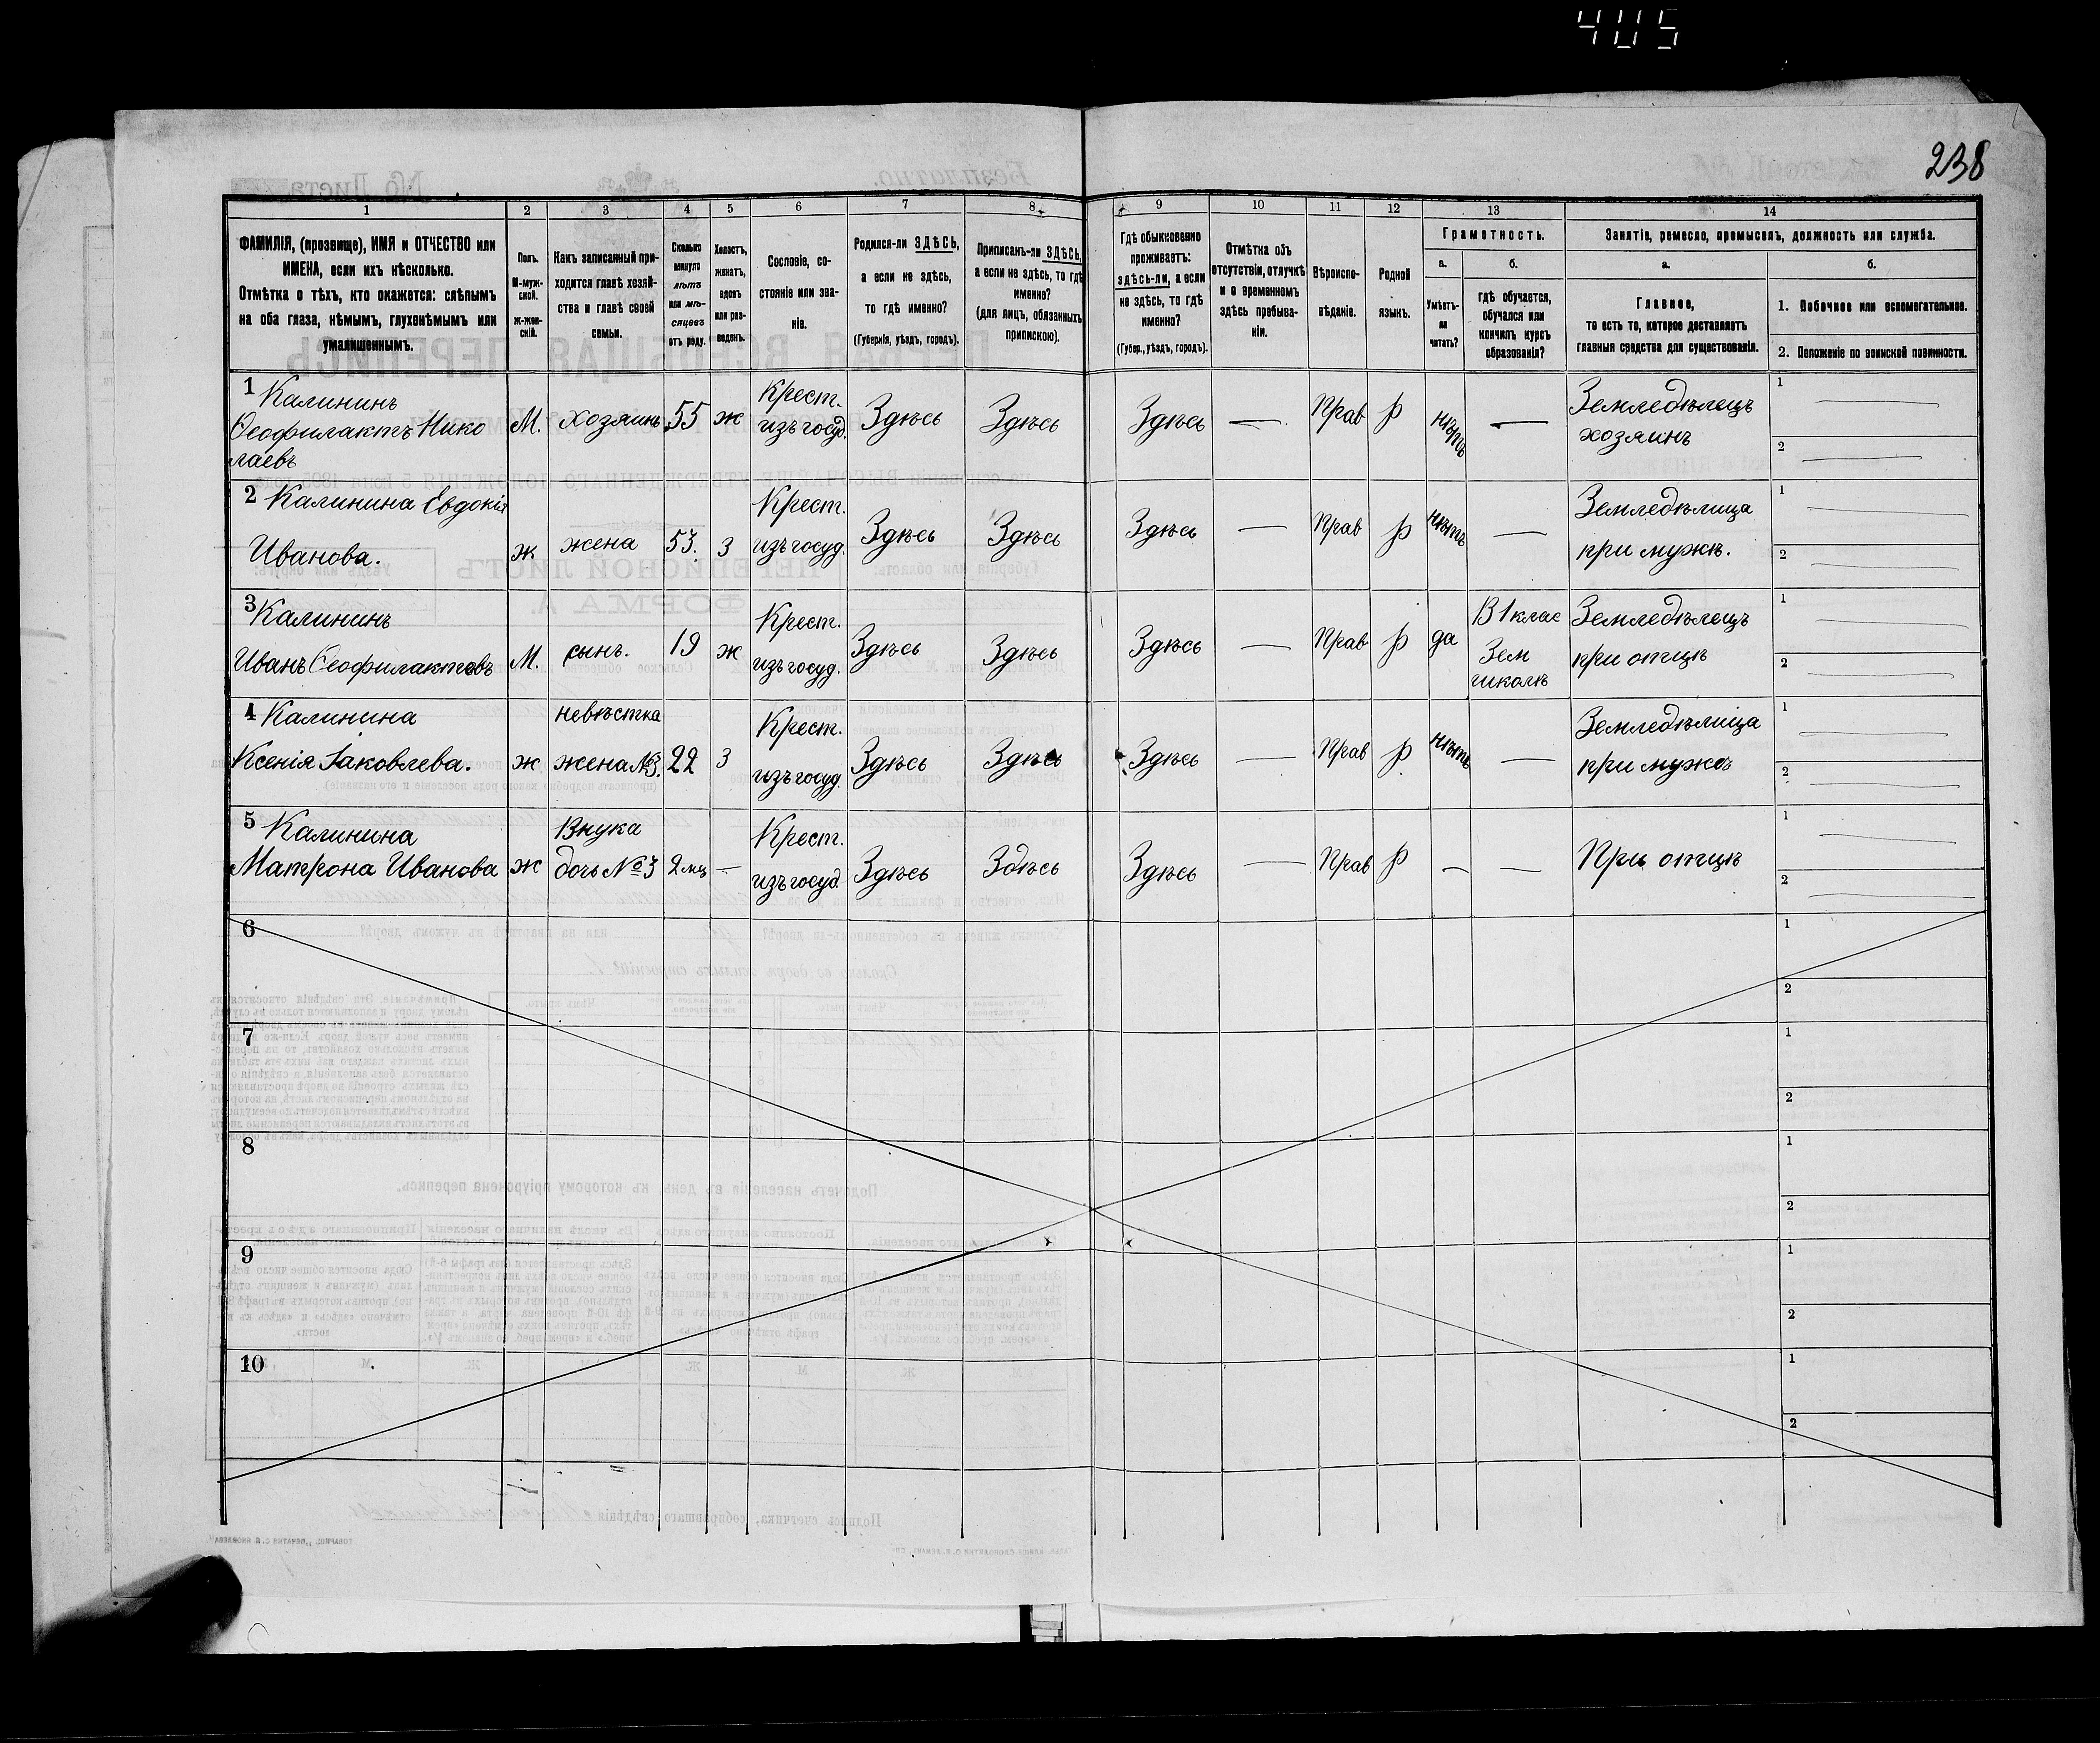 405
238
1
2
3
4
5
6
7
8
9
10
11
12
13
14
ФАМИЛІЯ, (прозвище), ИМЯ и ОТЧЕСТВО или
ИМЕНА, если ихъ нѣсколько.
Отмѣтка о тѣхъ, кто окажется: слѣпымъ
на оба глаза, нѣмымъ, глухонѣмымъ или
умалишеннымъ.
Полъ.
М-муж-
ской.
ж-жен-
скій.
Какъ записанный при-
ходится главѣ хозяй-
ства и главѣ своей
семьи.
Сколько
минуло
лѣтъ
или мѣ-
сяцевъ
отъ роду.
Холостъ,
женатъ,
вдовъ
или раз-
веденъ.
Сословіе, со-
стояніе или зва-
ніе.
Родился-ли ЗДѢСЬ,
а если не здѣсь,
то гдѣ именно?
(Губернія, уѣздъ, городъ).
Приписанъ-ли ЗДѢСЬ,
а если не здѣсь, то гдѣ
именно?
(для лицъ, обязанныхъ
припискою).
Гдѣ обыкновенно
проживаетъ:
здѣсь-ли, а если
не здѣсь, то гдѣ
именно?
(Губер., уѣздъ, городъ).
Отмѣтка объ
отсутствіи, отлучкѣ
и о временномъ
здѣсь пребыва-
ніи.
Вѣроиспо-
вѣданіе.
Родной
языкъ.
Грамотность.
а.
Умѣетъ-
ли
читать?
б.
гдѣ обучается,
обучался или
кончилъ курсъ
образованія?
Занятіе, ремесло, промыселъ, должность или служба.
а.
Главное,
то есть то, которое доставляетъ
главныя средства для существованія.
б.
1. Побочное или вспомогательное.
2. Положеніе по воинской повинности.
1 Калининъ
Ѳеофилактъ Нико
лаевъ
М.
хозяинъ
55
ж
Крест.
изъ госуд.
Здѣсь
Здѣсь
Здѣсь
—
Прав
р
нѣтъ
—
Земледѣлецъ
хозяинъ
1 —
2 —
2 Калинина Евдокія
Иванова.
ж
жена
53.
з
Крест.
изъ госуд.
Здѣсь
Здѣсь
Здѣсь
—
Прав
р
нѣтъ
—
Земледѣлица
при мужѣ.
1 —
2 —
3 Калининъ
Иванъ Ѳеофилактовъ
М.
сынъ.
19
ж
Крест.
изъ госуд.
Здѣсь
Здѣсь
Здѣсь
—
Прав
р
да
В 1 клас
Зем
школѣ
Земледѣлецъ
при отцѣ
1 —
2 —
4 Калинина
Ксенія Іаковлева.
ж
невѣстка
жена №3.
22
з
Крест.
изъ госуд.
Здѣсь
Здѣсь
Здѣсь
—
Прав
р
нѣтъ
—
Земледѣлица
при мужѣ
1 —
2 —
5 Калинина
Матрона Иванова
ж
Внука
дочь №3
2 мц
—
Крест.
изъ госуд.
Здѣсь
Здѣсь
Здѣсь
—
Прав
р
—
—
При отцѣ
1 —
2 —
6
1
2
7
1
2
8
1
2
9
1
2
10
1
2